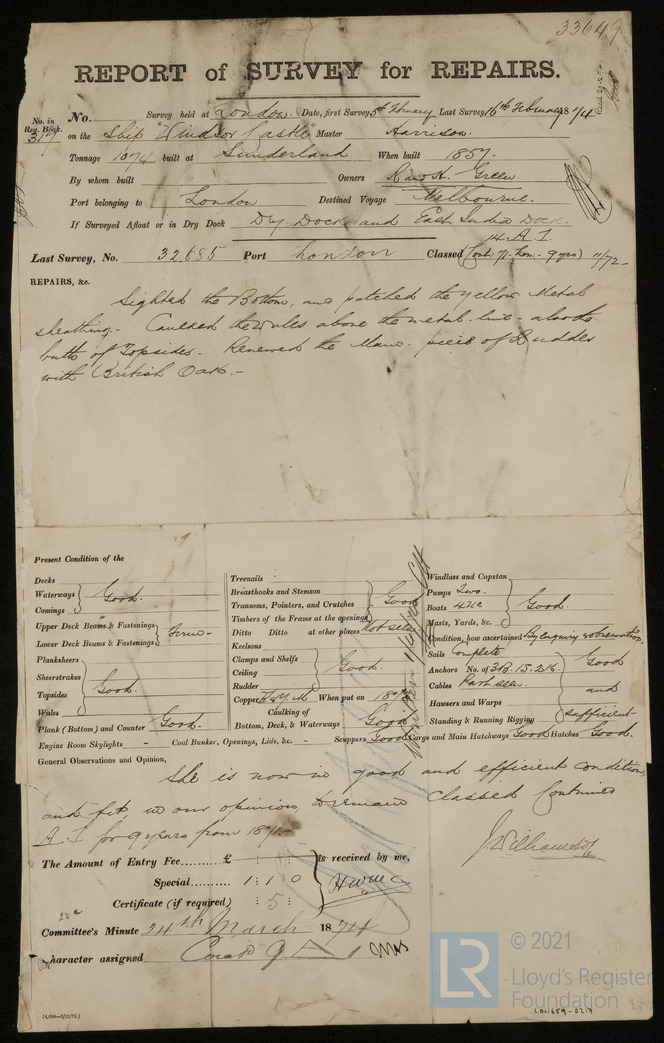 33649
REPORT of SURVEY for REPAIRS.
No. in Reg. Book. No. Survey held at London. Date, first Survey 5th February Last Survey 16th February 1874
317 on the Ship "Windsor Castle" Master Harrison.
Tonnage 1074 built at Sunderland When built 1857.
By whom built Owners R and H. Green.
Port belonging to London Destined Voyage Melbourne.
If Surveyed Afloat or in Dry Dock Dry Dock and East India Dock.
14 A.1.
Last Survey, No. 32685 Port London Classed (Cont. 71. Lon. 9 yrs) 11/72
REPAIRS, &c.
Sighted the Bottom, and patched the yellow Metal
sheathing. Caulked the wales above the metal line also the
butts of Topsides. Renewed the Main piece of Rudder
with British Oak.
Present Condition of the
Decks
Waterways Good.
Comings
Upper Deck Beams & Fastenings
Lower Deck Beams & Fastenings
Planksheers
Sheerstrakes
Topsides Good.
Wales
Plank (Bottom) and Counter Good.
Treenails
Breasthooks and Stemson Good
Transoms, Pointers, and Crutches
Timbers of the Frame at the openings
Ditto Ditto at other places Not seen
Keelsons
Clamps and Shelfs
Ceiling Good.
Rudder
Copper When put on
Caulking of
Bottom, Deck, & Waterways Good
Windlass and Capstan
Pumps Two.
Boats Good.
Masts, Yards, &c.
Condition, how ascertained By enquiry & observation.
Sails Complete
Anchors No. of 3B. 1S. 2K. Good
Cables Part seen. and
Hawsers and Warps
Standing & Running Rigging sufficient
Engine Room Skylights - Coal Bunker, Openings, Lids, &c. - Scuppers Good Cargo and Main Hatchways Good Hatches Good.
General Observations and Opinion,
She is now in good and efficient condition,
and fit, in our opinion, to remain Classed Continued
A.1. for 9 years from 1871.
J Williamson
The Amount of Entry Fee......... £ : : is received by me,
Special............ 1 : 1 : 0
Certificate (if required) : 5 :
Committee's Minute 24th March 1874
Character assigned Cont 9 A 1
[4,000—9/12/72.]
LON659-0217
LR
© 2021
Lloyd's Register
Foundation